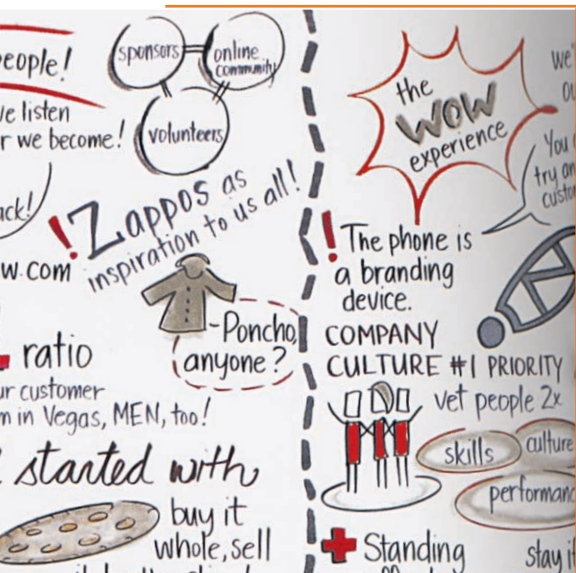 eople!
sponsors
online
community
volunteers
e listen
r we become!
ack!
! Zappos as
inspiration to us all!
w.com
-Poncho,
anyone?
ratio
ur customer
in Vegas, MEN, too!
started with
buy it
whole, sell
the
WOW
experience
we'
You
try an
custo
! The phone is
a branding
device.
COMPANY
CULTURE #1 PRIORITY
vet people 2x
skills
culture
performanc
+ Standing
stay i